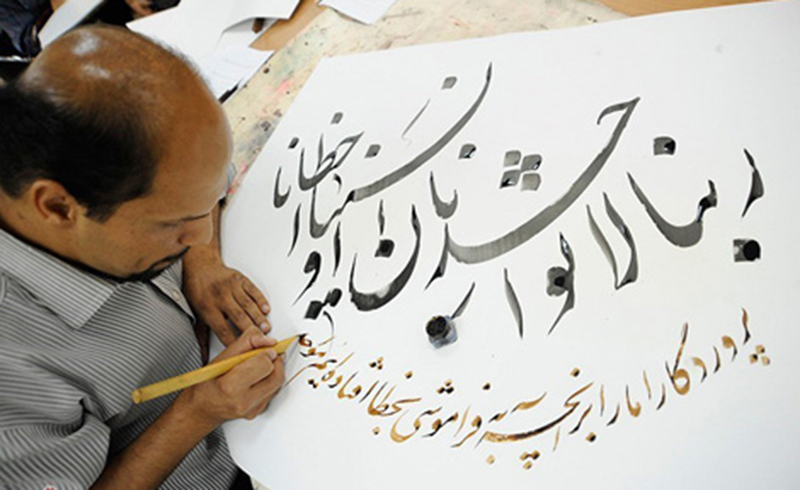 ربنا لا تواخذنا ان نسینا او اخطانا
پروردگارا ما را بر آنچه به فراموشی بخطا افتاده ایم